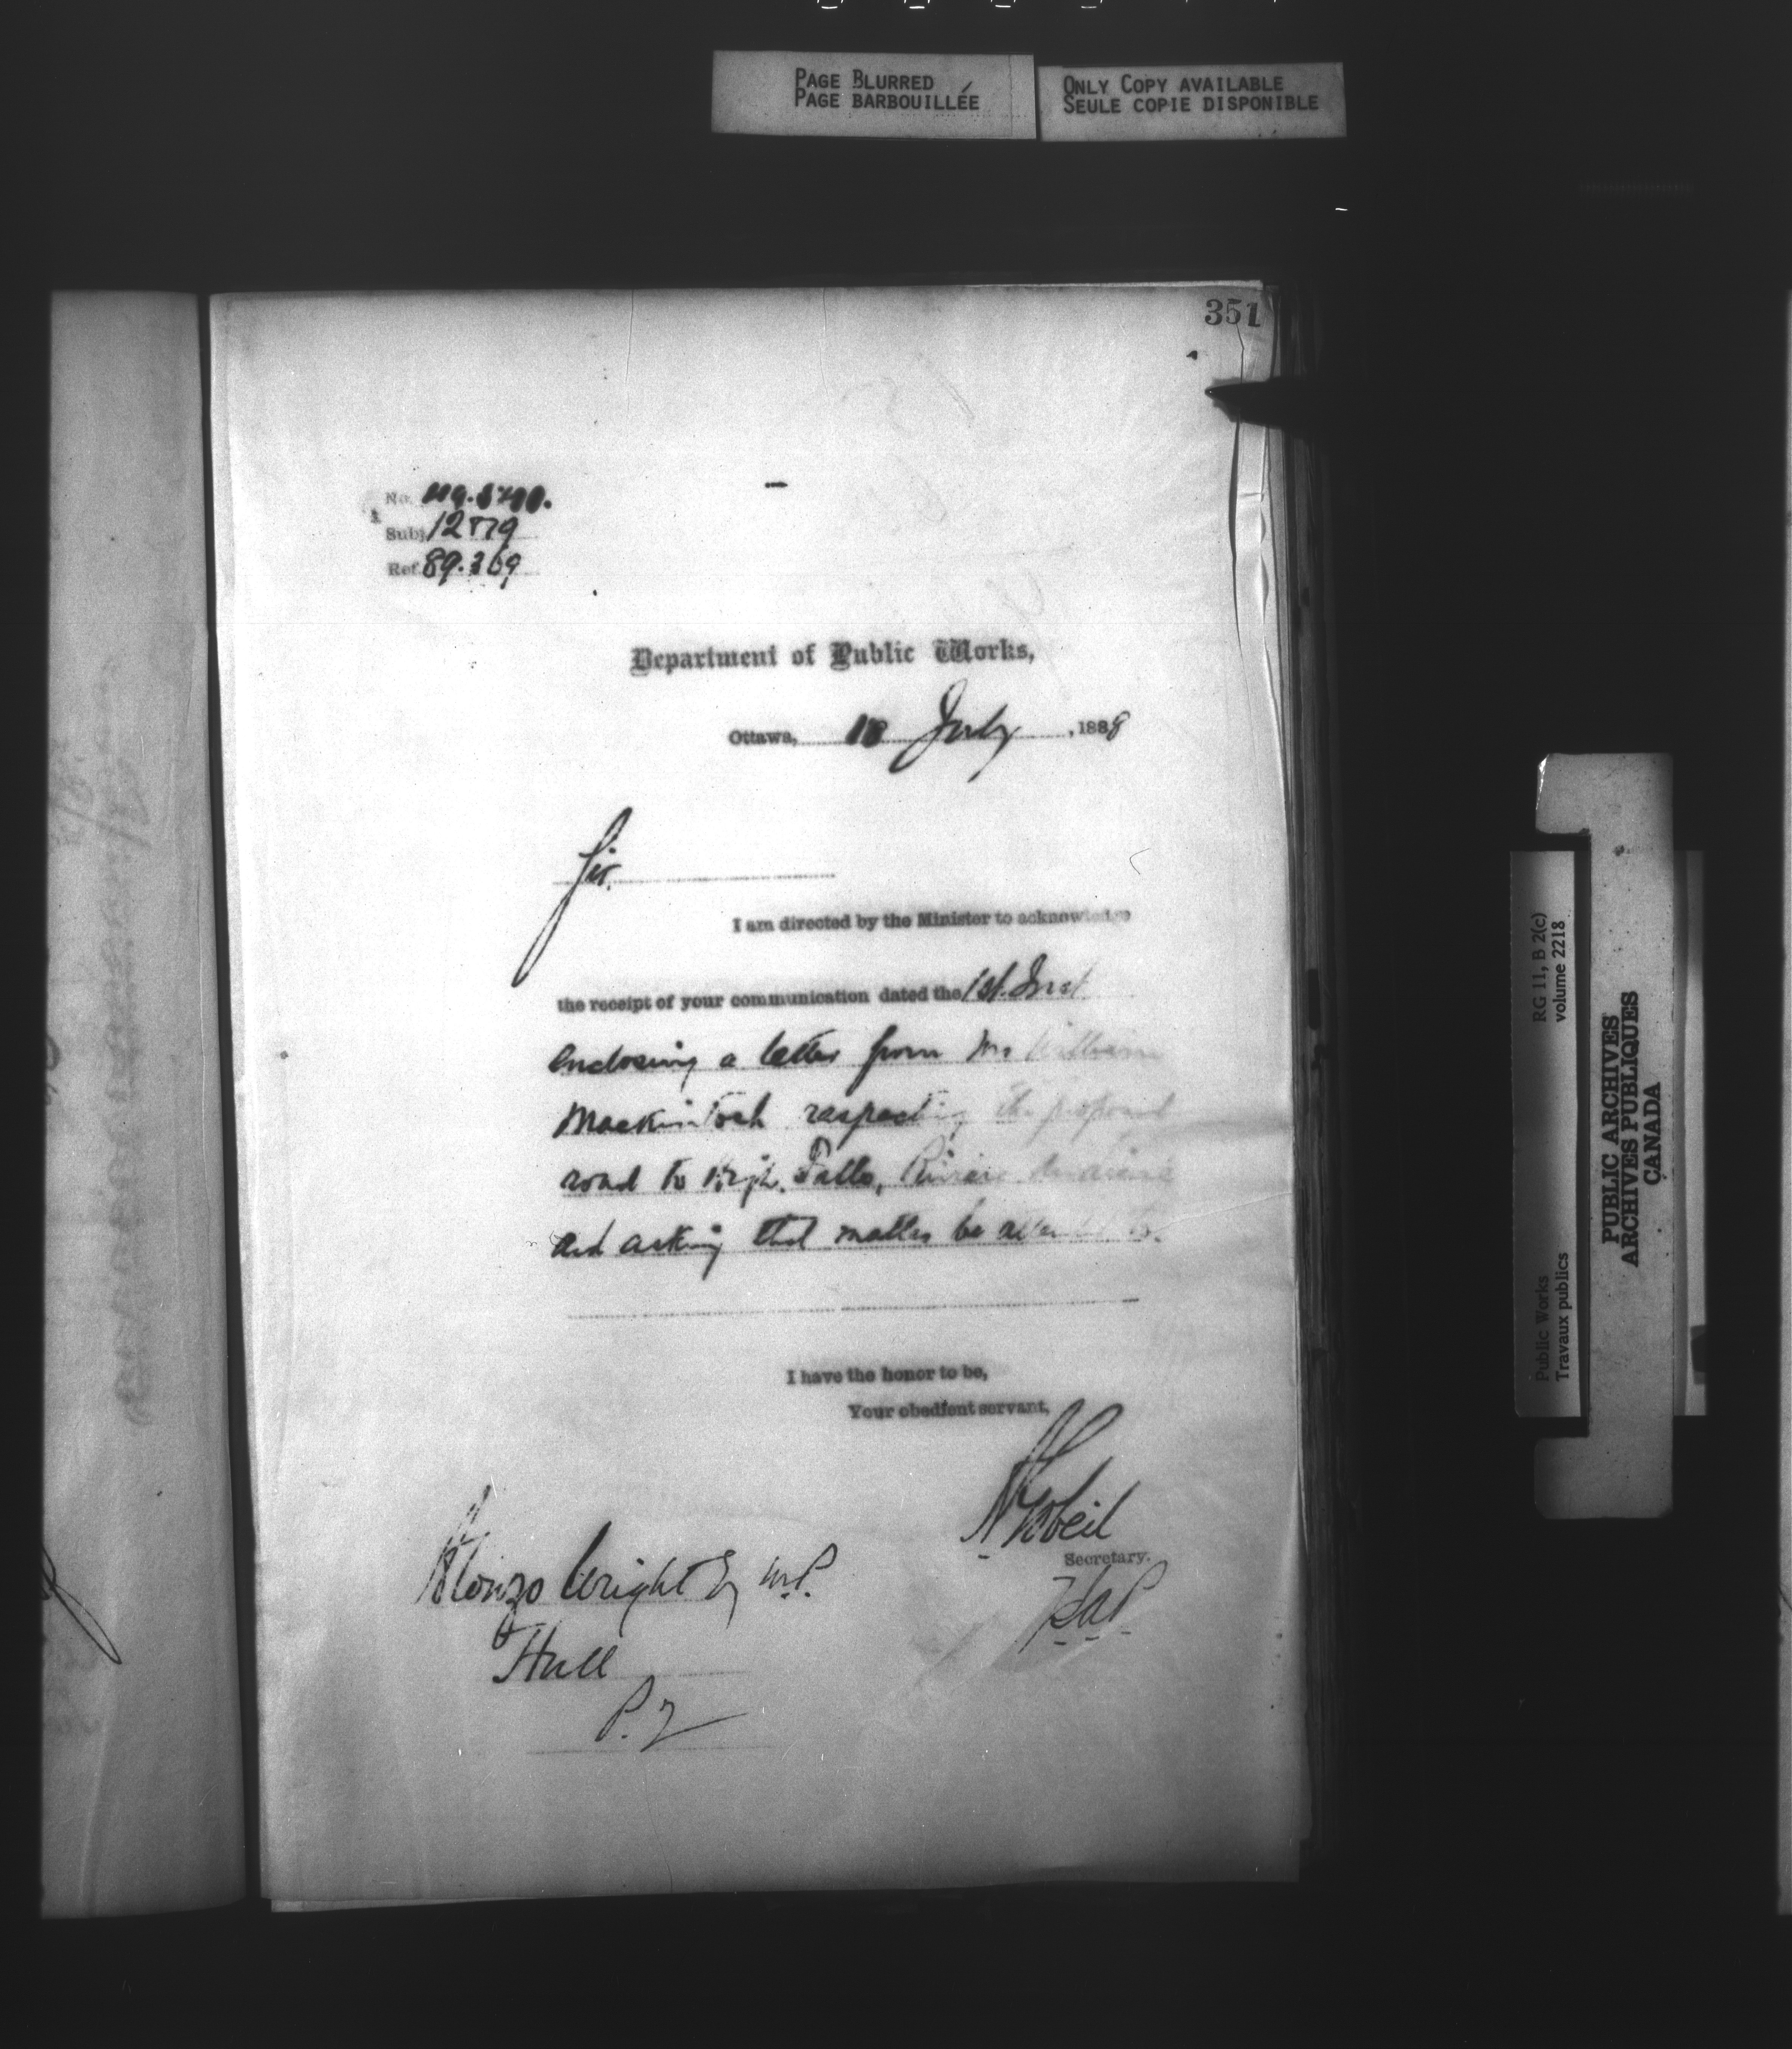 PAGE BLURRED
PAGE BARBOUILLÉE
ONLY COPY AVAILABLE
SEULE COPIE DISPONIBLE
351
No.
Subj 1279
Ref. 89.369
Department of Public Works,
Ottawa, 18 July, 1888
Sir.
I am directed by the Minister to acknowledge
the receipt of your communication dated the 1st. Inst
enclosing a letter from Mr William
Mackintosh respecting the proposed
road to High Falls,
and asking that matter be attended to.
I have the honor to be,
Your obedient servant,
A Gobeil
Secretary.
Alonzo Wright Esq M.P.
Hull
P.Q
RG 11, B 2(c)
volume 2218
Public Works
Travaux publics
PUBLIC ARCHIVES
ARCHIVES PUBLIQUES
CANADA